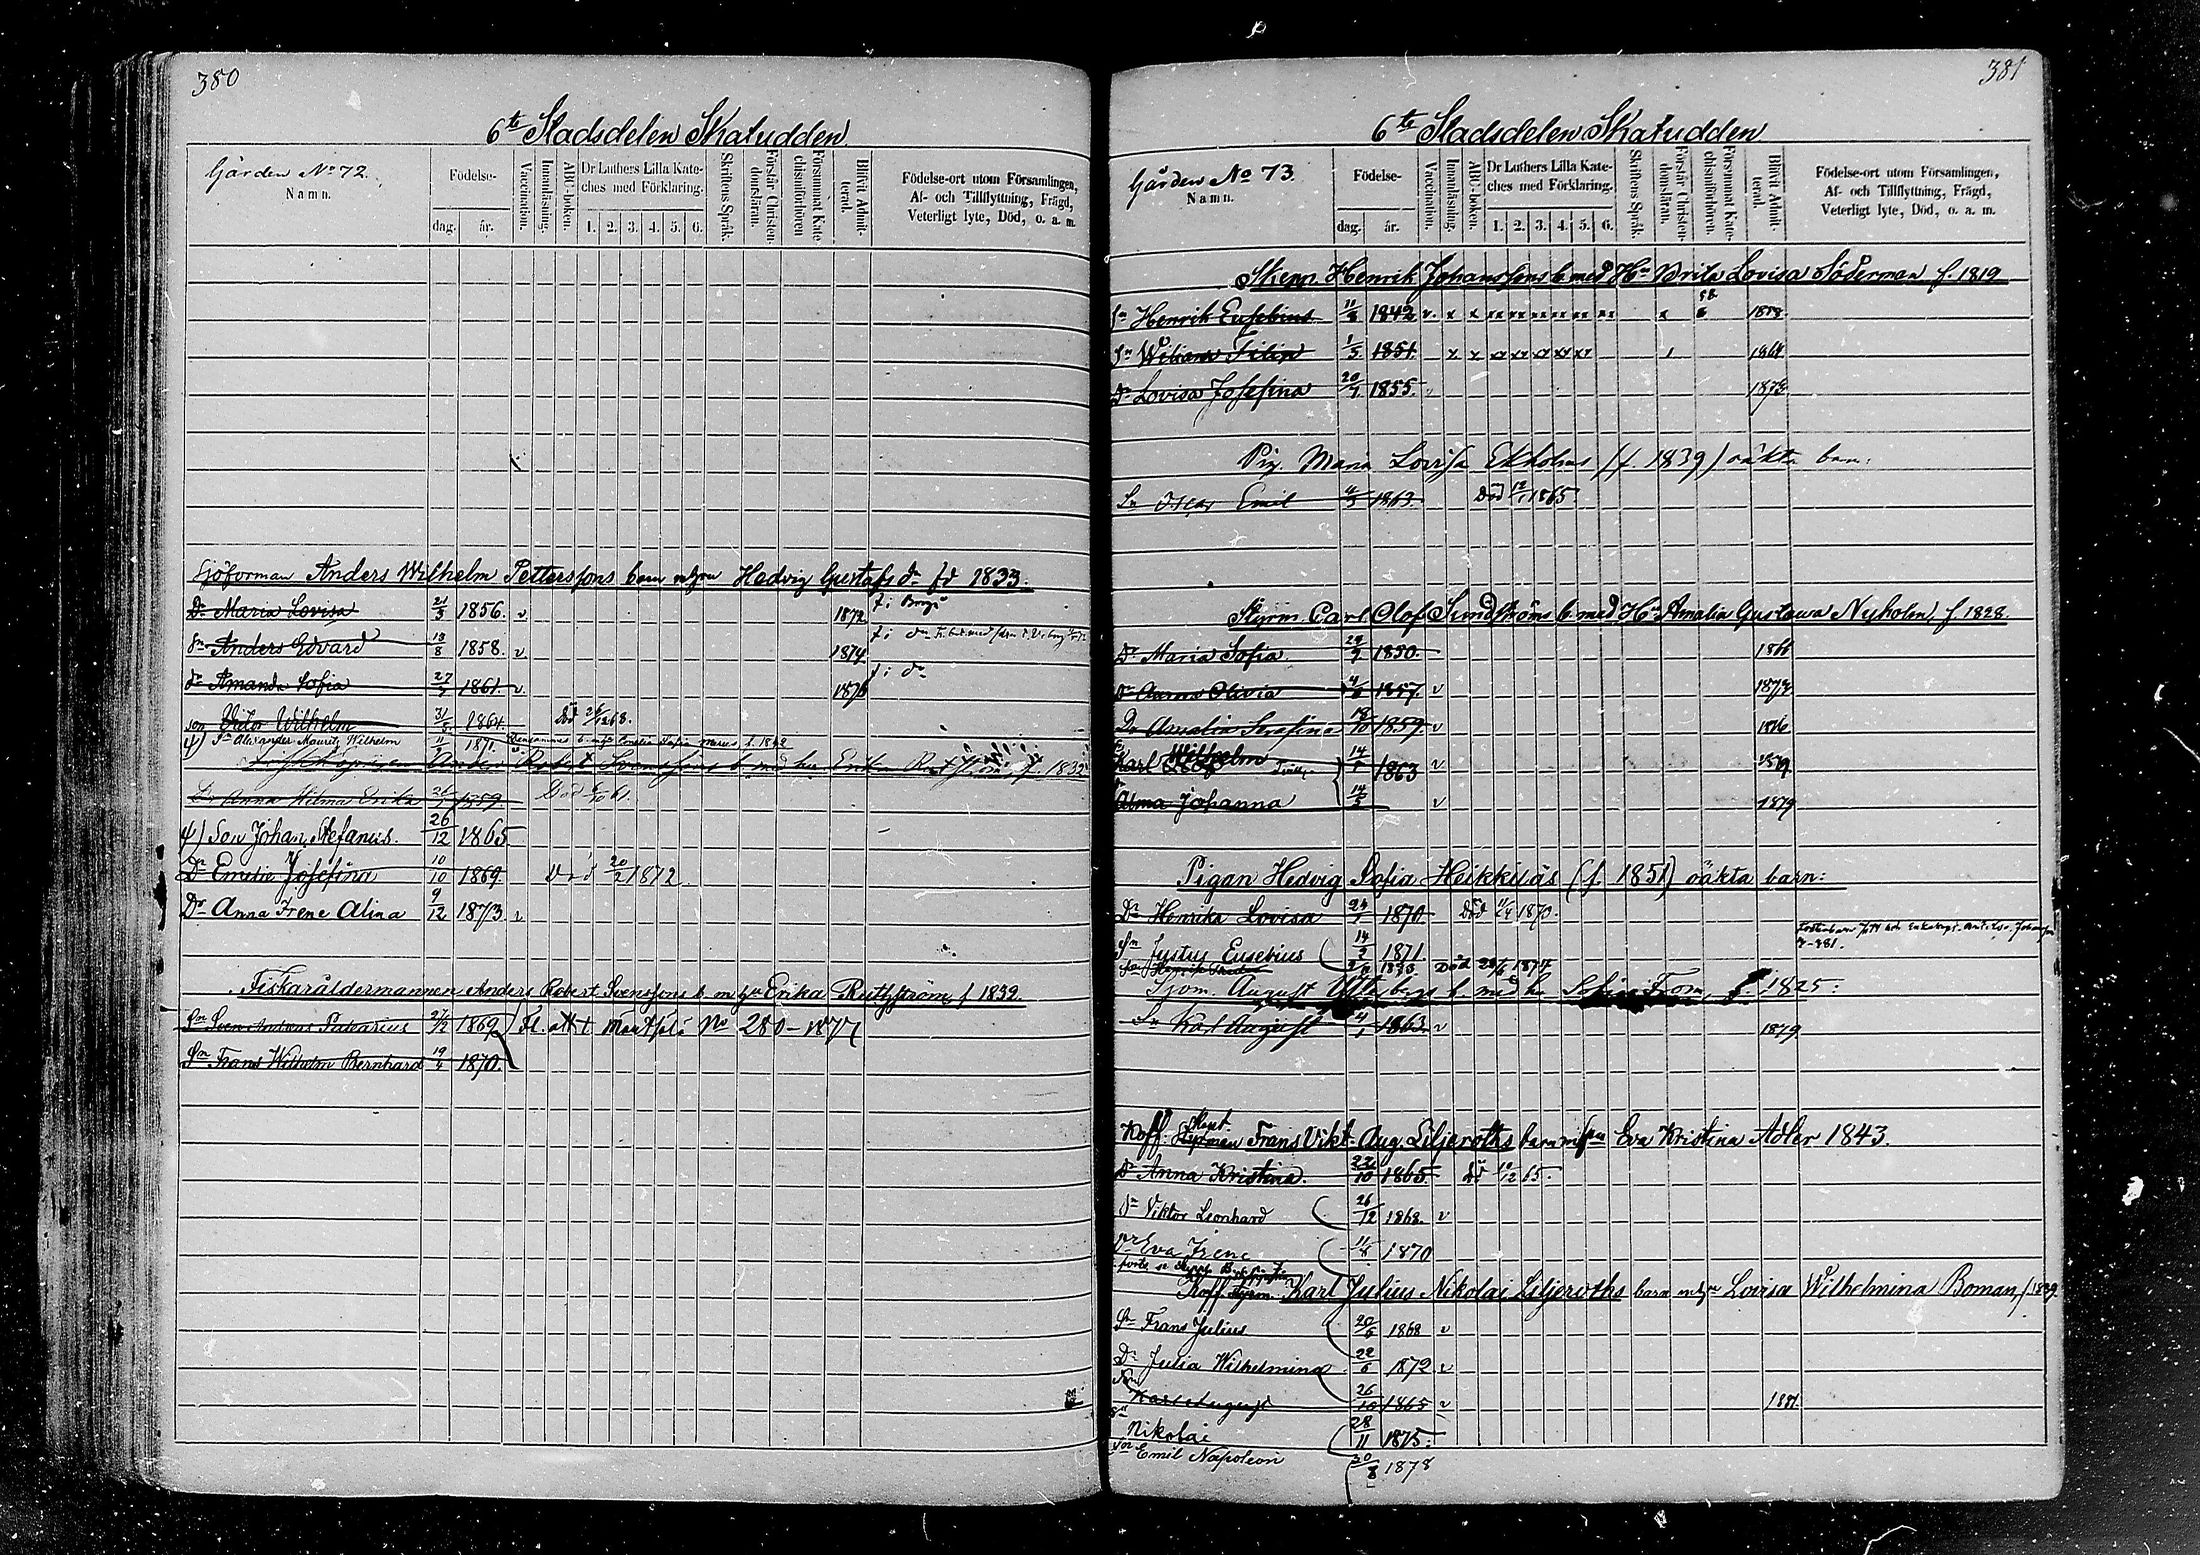 380
6te Stadsdelen Skatudden
Gården No 72.
Namn.
Födelse-
dag. år.
Vaccination.
Innanläsning.
ABC-boken.
Dr Luthers Lilla Kate-
ches med Förklaring.
1. 2. 3. 4. 5. 6.
Skriftens Språk.
Förstår Christen-
domsläran.
Försummat Kate
chismiförhören
Blifvit Admit-
terad.
Födelse-ort utom Församlingen,
Af- och Tillflyttning, Frägd,
Veterligt lyte, Död, o. a. m.
Sjöforman Anders Wilhelm Petterssons barn Hedvig Gustafsdr fd 1833.
Dr Maria Lovisa 21/3 1856. v 1872 f. i Borgå
Sn Anders Edvard 13/8 1858. v. 1874 f. i do
dr Amanda Sofia 27/7 1861. v. 1876 f. i do
son Victor Wilhelm 31/8 1864. Död 68.
Sn Alexander Mauritz Wilhelm 1871.
Anders Robert Svenssons b. med hu Erika f. 1832
Dr Anna Hilma Erika 26/1 1859. Död 61.
Son Johan Stefanus. 26/12 1865
Dr Emilie Josefina 10/10 1869 Död 20/2 1872
Dr Anna Irene Alina 9/12 1873. v
Fiskaråldermannen Anders Robert Svenssons b. m hu Erika Rutström f 1832.
Sn Sven Andreas 1869
No 280-1877
Sn Frans Wilhelm Bernhard 19/4 1870.
381
6te Stadsdelen Skatudden
Gården No 73
Namn.
Födelse-
dag. år.
Vaccination.
Innanläsning.
ABC-boken.
Dr Luthers Lilla Kate-
ches med Förklaring.
1. 2. 3. 4. 5. 6.
Skriftens Språk.
Förstår Christen-
domsläran.
Försummat Kate-
chismiförhören.
Blifvit Admit-
terad.
Födelse-ort utom Församlingen,
Af- och Tillflyttning, Frägd,
Veterligt lyte, Död, o. a. m.
Henrik Johanssons b. med Hu Brita Lovisa Söderman f. 1819
Sn Henrik Eusebius 11/8 1842 v. x x xx xx xx xx xx xx x 1858
Sn Wiliam Filip 1/5 1851. x x xx xx xx xx xx 1
Dr Lovisa Josefina 20/7 1855. 1873
Pig. Maria Lovisa Ekholms (f. 1839) oäkta barn:
Sn Oscar Emil 1863. Död 12/1 1865
Styrm. Carl Olof Sundströms b. med Hu Amalia Gustawa Nyholm, f. 1828.
Dr Maria Sofia. 29/9 1850. 1866
Dr Aurora Olivia 1857. v 1874
Dr Amalia Serafina 18/10 1859. v 1876
Karl Wilhelm 14/5 1863 v 1879
Alma Johanna 14/5 v 1879
Pigan Hedvig Sofia Heikkiläs (f. 1851) oäkta barn:
Dr Henrika Lovisa 24/1 1870 Död 11/4 1870.
Sn Justus Eusebius 14/2 1871.
1873 Död 1874
Sjöm. August b. med hu Sofia From, f 1825:
Sn Karl August 4/1 1863 v 1879
Koff. Frans Vikt. Aug. Liljeroths barn Eva Kristina Adler 1843.
Dr Anna Kristina. 22/10 1865. död 65.
Sn Viktor Leonhard 26/12 1868. v
Dr Eva Irene 11/8 1870
Koff. styrm. Karl Julius Nikolai Liljeroths barn Lovisa Wilhelmina Boman, f 1839
Sn Frans Julius 20/6 1868 v
Dr Julia Wilhelmina 22/6 1872 v
Son Karl August 26/10 1865 v 1881
Sn Nikolai 28/11 1875.
Son Emil Napoleon 20/8 1878